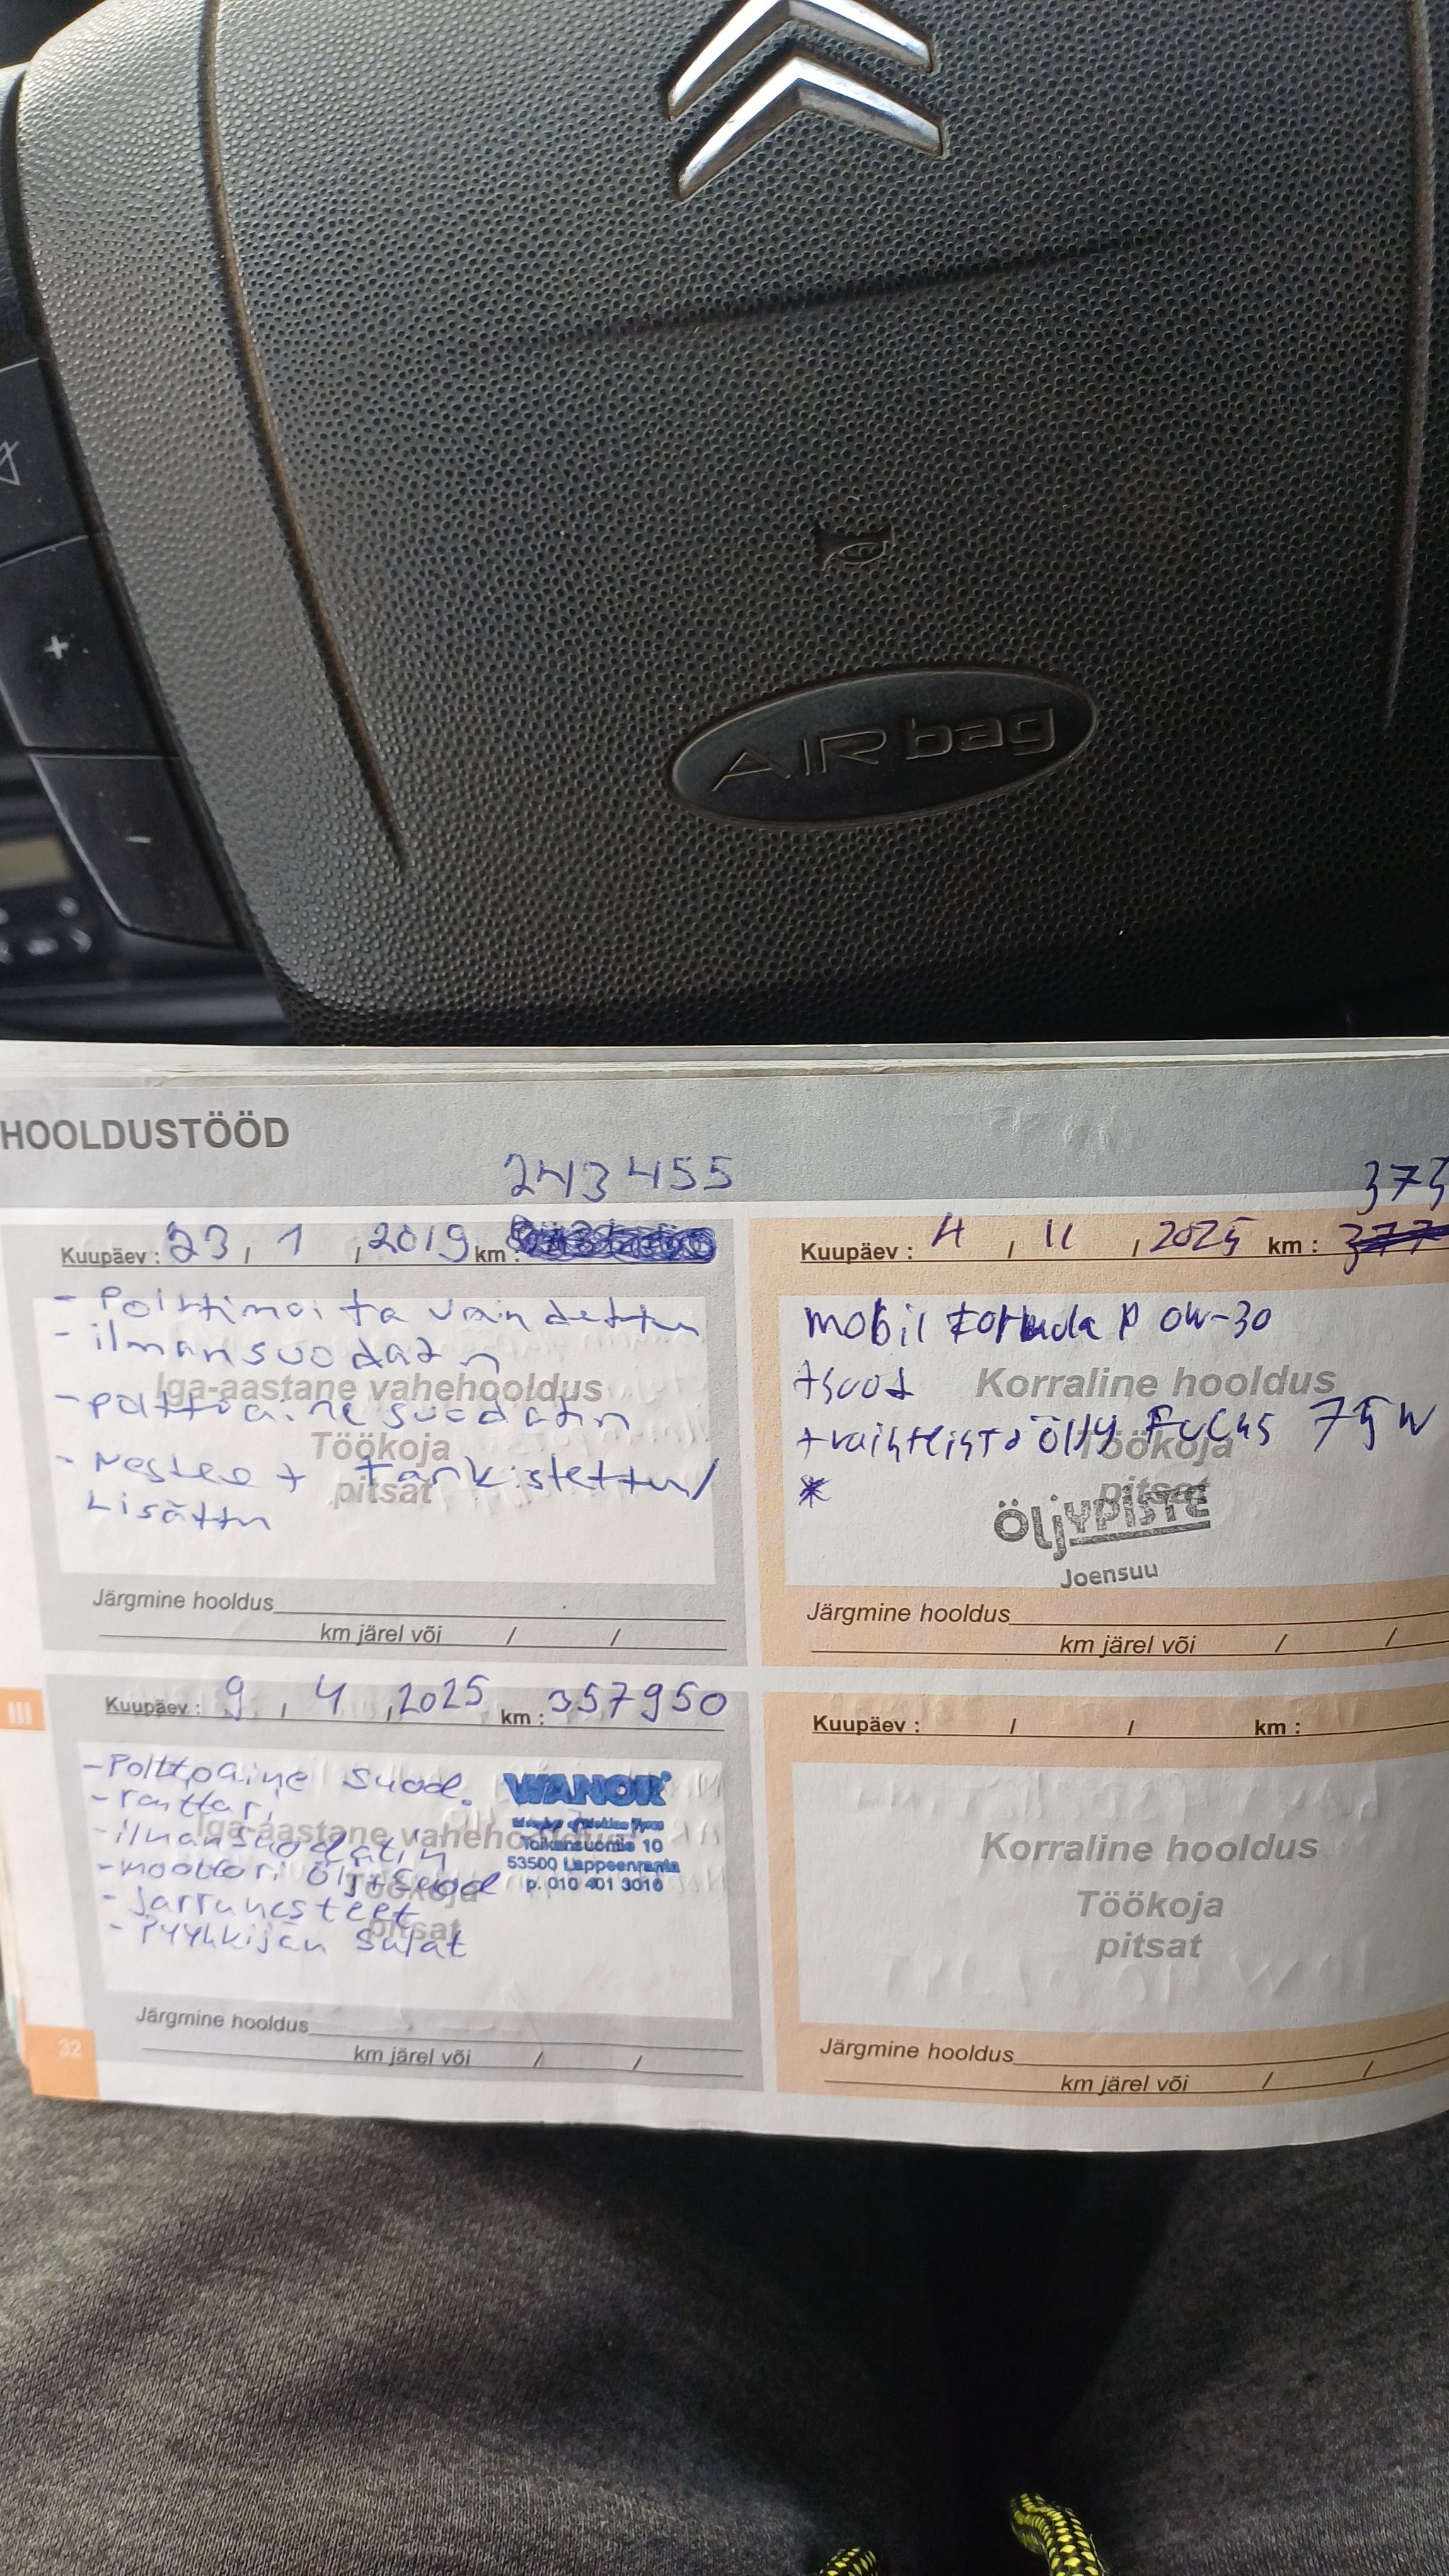 AIRbag
HOOLDUSTÖÖD
243 455
Kuupäev : 23, 1 , 2019 km :
- ilmansuodatin
Iga-aastane vahehooldus
- polttoaine suodatin
Töökoja
- Nesteet tarkistettu/
pitsat
Lisätty
Järgmine hooldus
km järel või / /
Kuupäev : 9 , 4 , 2025 km : 357950
- Polttoaine suod.
- raittari
- ilmansuodatin
Iga-aastane vahehooldus
- moottori ölj+suod
Töökoja
- Jarrunesteet
pitsat
- Pyyhkijän Sulat
WANOR
Toikansuontie 10
53500 Lappeenranta
p. 010 401 3010
Järgmine hooldus
km järel või / /
32
III
373
Kuupäev : 4 , 11 , 2025 km : 377
mobil formula P 0W-30
+suod
Korraline hooldus
+vaihteisto öljy Fuchs 75W
Töökoja
*
pitsat
ÖljYPISTE
Joensuu
Järgmine hooldus
km järel või / /
Kuupäev : / / km :
Korraline hooldus
Töökoja
pitsat
Järgmine hooldus
km järel või / /